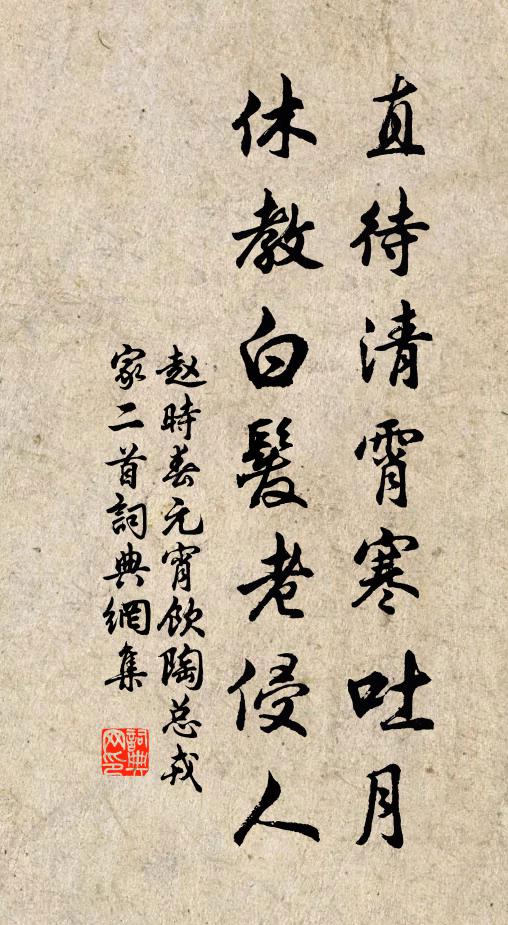 直待清霄寒吐月
休教白髮老侵人
赵時春元宵飲陶总戎
家二首詞典網集
詞典網印